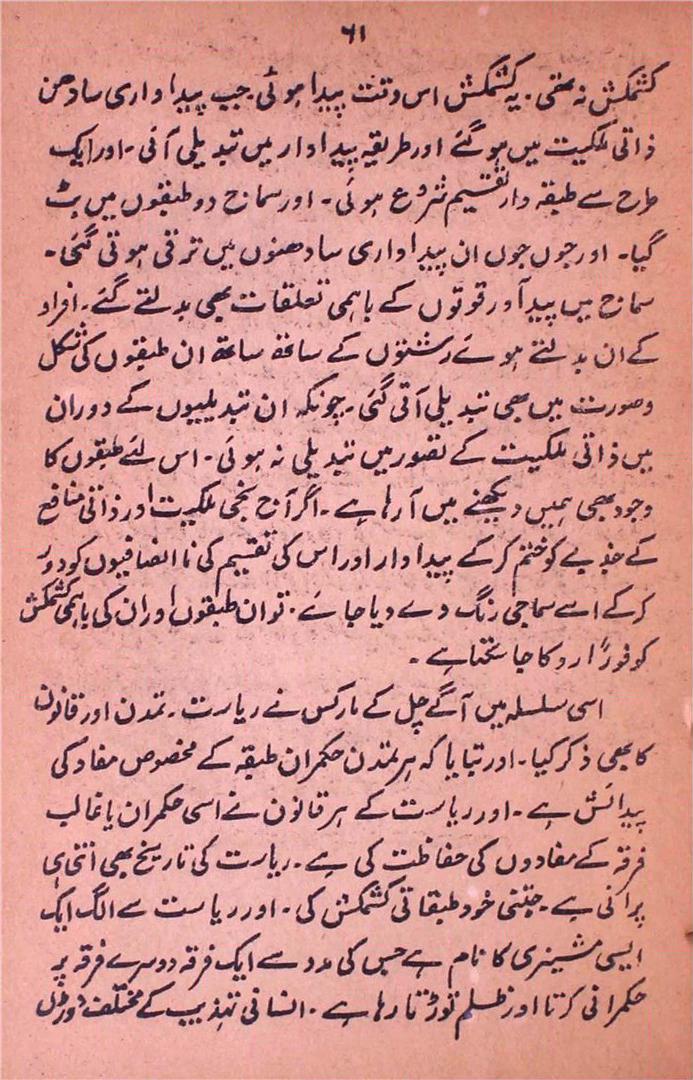 ۶۱
کشمکش نہ تھی۔ یہ کشمکش اس وقت پیدا ہوئی۔ جب پیداواری سادھن
ذاتی ملکیت میں ہو گئے اور طریقہ پیداوار میں تبدیلی آئی۔ اور ایک
طرح سے طبقہ وار تقسیم شروع ہوئی۔ اور سماج دو طبقوں میں بٹ
گیا۔ اور جوں جوں ان پیداواری سادھنوں میں ترقی ہوتی گئی۔
سماج میں پیدآور قوتوں کے باہمی تعلقات بھی بدلتے گئے۔ افراد
کے ان بدلتے ہوئے رشتوں کے ساتھ ساتھ ان طبقوں کی شکل
وصورت میں بھی تبدیلی آتی گئی۔ چونکہ ان تبدیلیوں کے دوران
میں ذاتی ملکیت کے تصور میں تبدیلی نہ ہوئی۔ اس لئے طبقوں کا
وجود بھی ہمیں دیکھنے میں آ رہا ہے۔ اگر آج نجی ملکیت اور ذاتی منافع
کے جذبے کو ختم کر کے پیداوار اور اس کی تقسیم کی نا انصافیوں کو دور
کر کے اسے سماجی رنگ دے دیا جائے۔ تو ان طبقوں اور ان کی باہمی کشمکش
کو فوراً روکا جا سکتا ہے۔
اسی سلسلہ میں آگے چل کے مارکس نے ریاست۔ تمدن اور قانون
کا بھی ذکر کیا۔ اور بتایا کہ ہر تمدن حکمران طبقہ کے مخصوص مفاد کی
پیدائش ہے۔ اور ریاست کے ہر قانون نے اسی حکمران یا غالب
فرقہ کے مفادوں کی حفاظت کی ہے۔ ریاست کی تاریخ بھی اتنی ہی
پرانی ہے۔ جتنی خود طبقاتی کشمکش کی۔ اور ریاست سے الگ ایک
ایسی مشینری کا نام ہے جس کی مدد سے ایک فرقہ دوسرے فرقہ پر
حکمرانی کرتا اور ظلم توڑتا رہا ہے۔ انسانی تہذیب کے مختلف دوروں